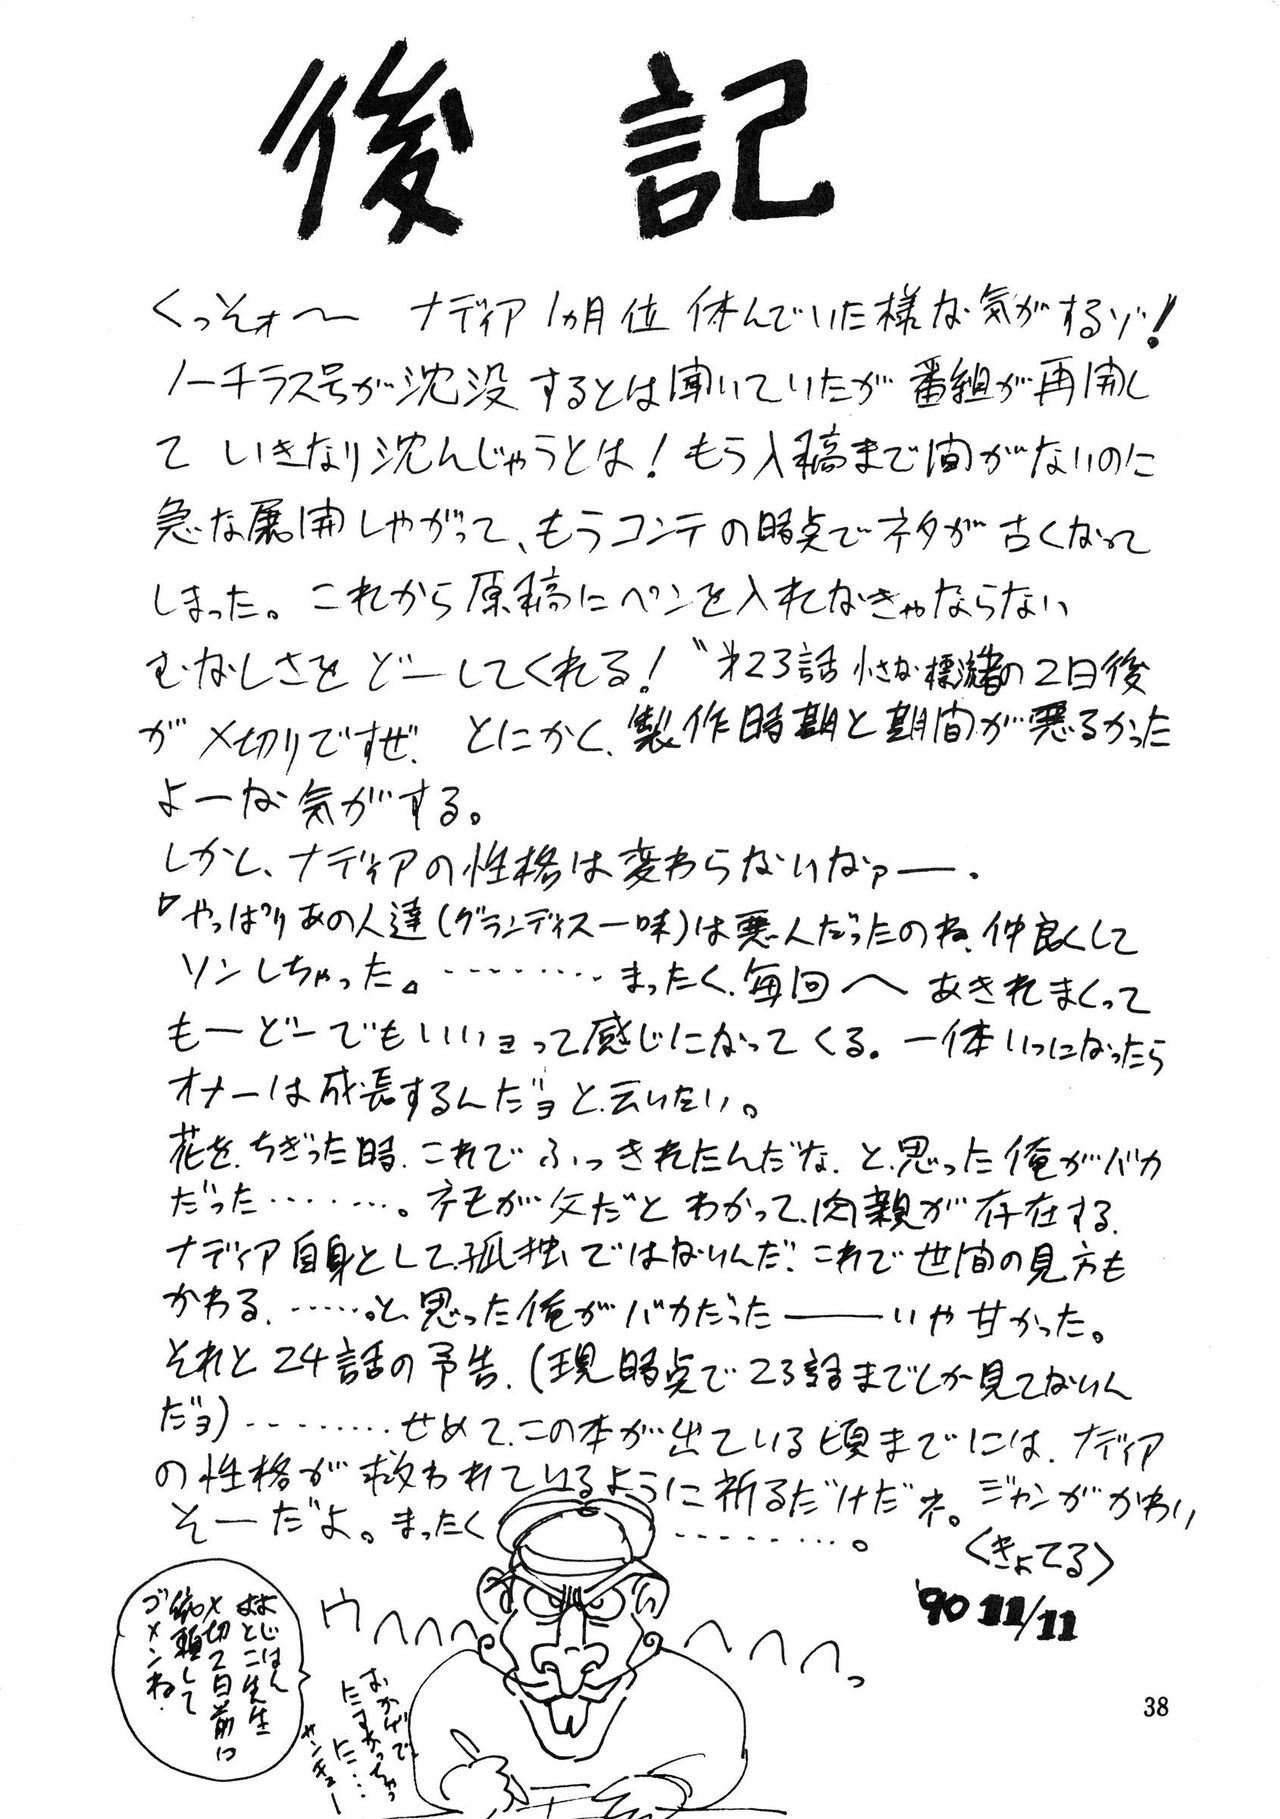 後記
くっそォ〜 ナディア1ヵ月位休んでいた様な気がするゾ!
ノーチラス号が沈没するとは聞いていたが番組が再開し
ていきなり沈んじゃうとは!もう入稿まで間がないのに
急な展開しやがって、もうコンテの時点でネタが古くなって
しまった。これから原稿にペンを入れなきゃならない
むなしさをどーしてくれる!〝第23話 小さな漂流者の2日後
が〆切りですぜ。とにかく、製作時期と期間が悪るかった
よーな気がする。
しかし、ナディアの性格は変わらないなァー。
「やっぱりあの人達(グランディス一味)は悪人だったのね、仲良くして
ソンしちゃった。」………まったく、毎回へあきれまくって
もーどーでもいいョって感じになってくる。一体いつになったら
オナーは成長するんだョと、云いたい。
花を、ちぎった時、これでふっきれたんだな、と、思った俺がバカ
だった………。ネモが父だとわかって、肉親が存在する、
ナディア自身として、孤独ではないんだ、これで世間の見方も
かわる、……。と、思った俺がバカだった――いや甘かった。
それと24話の予告、(現時点で23話までしか見てないん
だョ)………せめて、この本が出ている頃までには、ナディア
の性格が救われているように祈るだけだネ。ジャンがかわい
そーだよ。まったく………。
〈きよてる〉
'90 11/11
ウヘヘヘヘ
ヘヘヘヘっ
よじはん
よとこ先生
〆切2日前に
依頼して
ゴメンね。
おかげで
たすかっちゃっ
た…
サンキュー
38